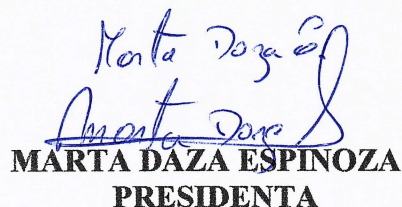 Marta Daza E.
Marta Daza
MARTA DAZA ESPINOZA
PRESIDENTA